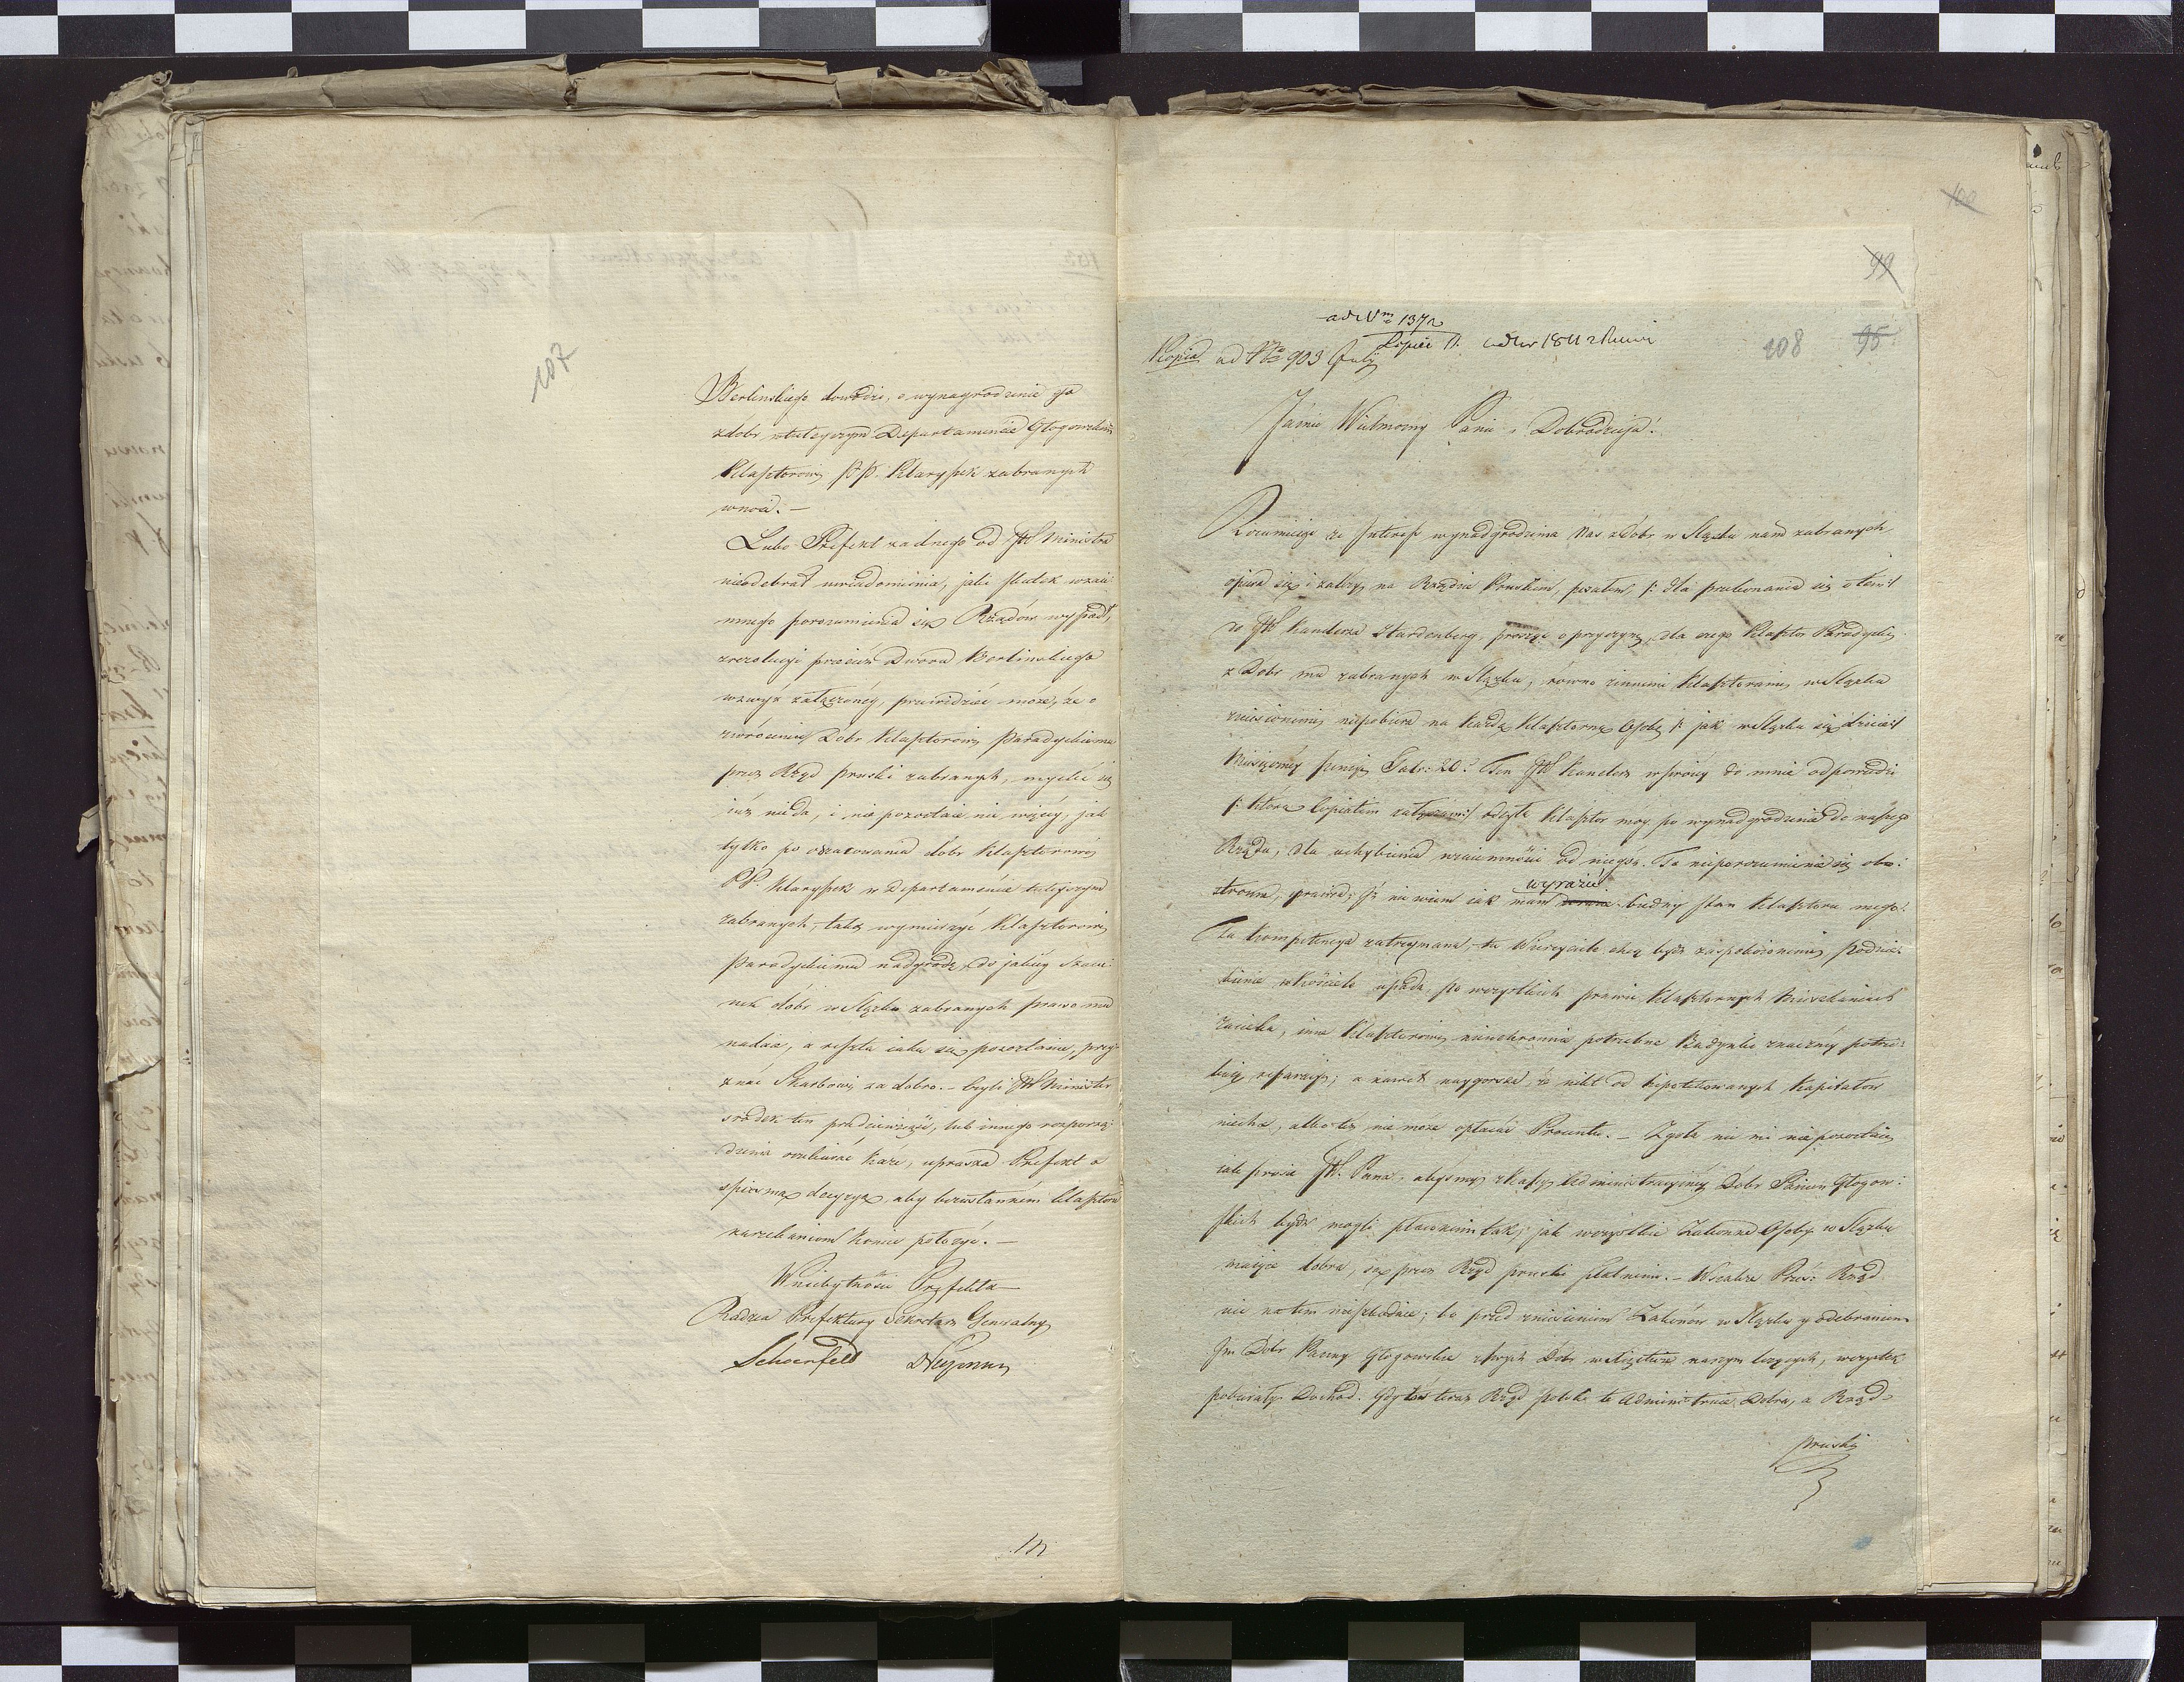 107
Berlinskiego dowodzi, o wynagrodzenie go
z dobr w tuteyszym Departamencie Głogowskim
Klasztorowi PP. Klaryssek zabranych
wnosi. —
Lubo Prefekt żadnego od JW Ministra
nieodebrał uwiadomienia, jaki skutek wzaie:
mnego porozumienia się Rządów wypadł,
z rezolucyi przecież Dworu Berlinskiego
wzwyż załączoney, przewidzieć może, że o
zwróceniu Dobr Klasztorowi Paradyskiemu
przez Rząd pruski zabranych, mysleć się
iuż nieda, i nie pozostaie nic więcey, jak
tylko po oszacowaniu dobr Klasztorowi
PP. Klaryssek w Departamencie tuteyszym
zabranych, taką wymierzyć Klasztorowi
Paradyskiemu nadgrodę, do jakiey Szacu:
nek dóbr w Slązku zabranych prawo mu
nadaie, a reszta iaka się pozostanie, przy:
znać Skarbowi za dobro. — Czyli JW Minister
srodek ten przedsięwziąść, lub innego rozporzą:
dzenia oczekiwać każe, uprasza Prefekt o
spieszną decyzyą, aby bezustannem Klasztoru
narzekaniom koniec położyć. —
W niebytności Prefekta
Radzca Prefektury Sekretarz Generalny
Schoenfeld
111
100
99
ad Num 1372
Lipiec 11. ad 1811
Kopia ad No 903 July
108 95
Jaśnie Wielmożny Panie, Dobrodzieju!
Rozumieiąc że Interess wynadgrodzenia Nas z Dobr w Slązku nam zabranych
opiera się i zależy na Rządzie Pruskim, pisałem, /: dla przekonania się o tem :/
do JW Kanclerza Hardenberg, prosząc o przyczynę, dla czego Klasztor Paradyski
z Dobr mu zabranych w Slązku, równo z innemi Klasztorami w Slązku
zniesionemi, niepobiera na każdą Klasztorną Osobę /: jak w Slązku się dzieie :/
Miesięczney pensyi Talr: 20? Ten JW Kanclerz w swoiey do mnie odpowiedzi
/: którą Copiatim załączam :/ odsyła Klasztor moy po wynadgrodzenie do naszego
Rządu, dla uchybienia wzaiemności od niegoż. To nieporozumienie się obo:
stronne, sprawia, iż nie wiem iak mam wyrazić biedny stan Klasztoru mego.
Ta kompetencya zatrzymana, tu Wierzyciele chcą bydź zaspokoionemi, Podnie:
bienie w Kościele upada, po wszystkich prawie Klasztornych Mieszkaniach
zacieka, inne Klasztorowi nieuchronnie potrzebne Budynki znaczney potrze:
buią reparacyi; a nawet naygorsza, że nikt od hipotekowanych Kapitałów
niechce, albo też nie może opłacać Procentu. — Zgoła nic mi niepozostaie,
iak prosić JW. Pana, abyśmy z kassy Administracyiney Dobr Panien Głogow:
skich bydź mogli płaconemi tak, jak wszystkie Zakonne Osoby w Slązku
maiące dobra, są przez Rząd pruski płatnemi. — Wszakże Prus: Rząd
nic na tem nieszkoduie; bo przed zniesieniem Zakonów w Slązku y odebraniem
Im Dobr Panny Głogowskie z swych Dobr w Xięstwie naszym leżących, wszystek
pobierały Dochód. Gdy tedy teraz Rząd polski te Administruie Dobra, a Rząd
pruski